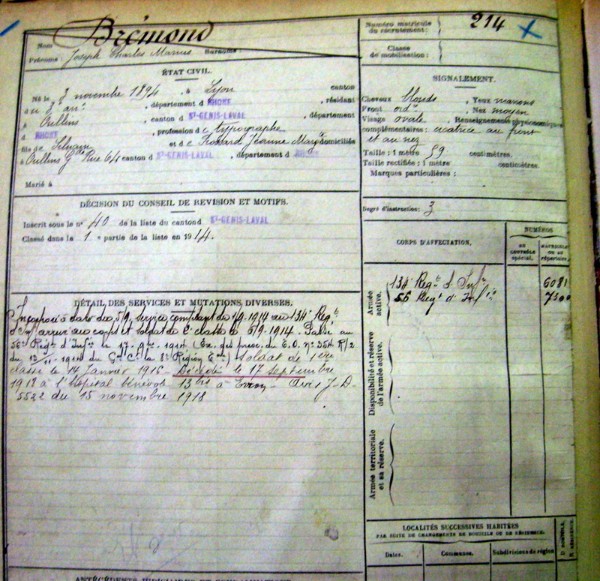 Brémond
Nom
Prénoms Joseph Charles Marius Surnoms :
Numéro matricule du recrutement : 214
Classe de mobilisation :
ÉTAT CIVIL.
Né le 3 novembre 1894, à Lyon canton
du 3e arrt, département d RHONE, résidant
à Oullins, canton d St-GENIS-LAVAL, département
d RHONE, profession de typographe
fils de et de Jeanne domiciliés
à Oullins Gde Rue 64 canton d St-GENIS-LAVAL, département d RHONE
Marié à
SIGNALEMENT.
Cheveux blonds, Yeux marrons
Front ordre, Nez moyen
Visage ovale, Renseignements physionomiques
complémentaires : cicatrice au front
et au nez
Taille : 1 mètre 59 centimètres.
Taille rectifiée : 1 mètre centimètres.
Marques particulières :
DÉCISION DU CONSEIL DE REVISION ET MOTIFS.
Inscrit sous le no 40 de la liste du canton d St-GENIS-LAVAL
Classé dans la 1e partie de la liste en 1914.
Degré d'instruction : 3
CORPS D'AFFECTATION.
NUMÉROS
AU CONTRÔLE spécial.
MATRICULE OU AU répertoire.
Armée active.
134e Regt d'Infie
56 Regt d'Infie
Disponibilité et réserve de l'armée active.
Armée territoriale et sa réserve.
DÉTAIL DES SERVICES ET MUTATIONS DIVERSES.
Incorporé à dater du 5/9, service comptant du 1/9 1914 au 134e Regt
d'Inf arrivé au corps et soldat de 2e classe le 5/9 1914. Passé au
56e Régt d'Infie le 17
du 1914 du Gal Ct la 8e Région soldat de 1ère
classe le 14 Janvier 1915 - Décédé le 17 septembre
1918 à l'hôpital bénévole 13 bis à Evron - Avis J-D-
5522 du 15 novembre 1918
LOCALITÉS SUCCESSIVES HABITÉES
PAR SUITE DE CHANGEMENTS DE DOMICILE OU DE RÉSIDENCE.
Dates. Communes. Subdivisions de région.
D. DOMICILE. R. RÉSIDENCE.